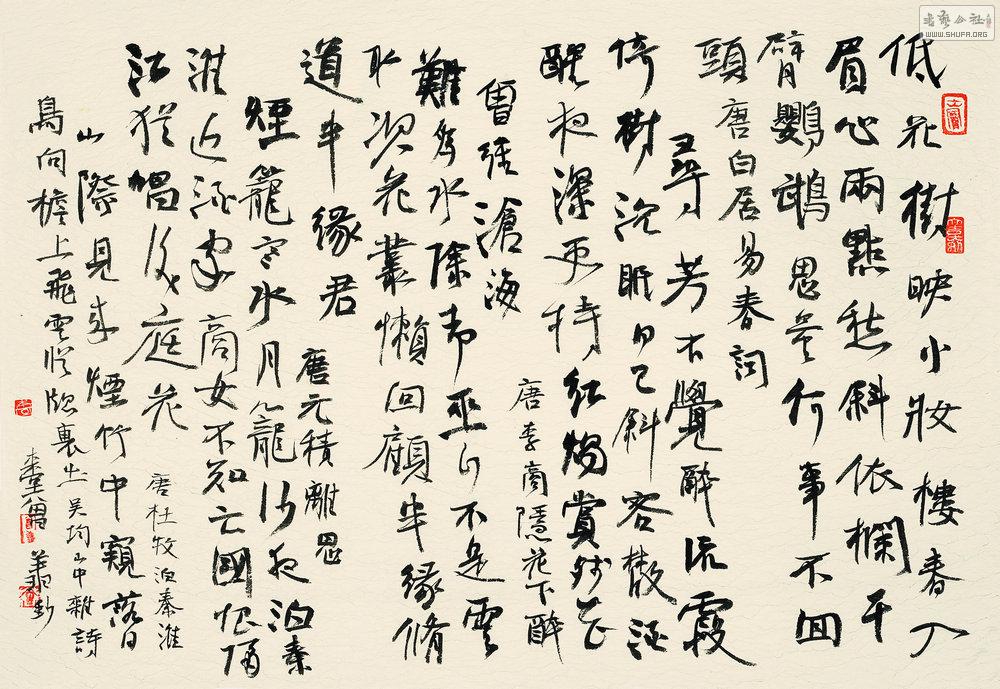 低花樹映小妝樓春入
眉心兩點愁斜依欄干
臂鸚鵡思量何事不回
頭唐白居易春詞
尋芳不覺醉流霞
倚樹沉眠日已斜客散酒
醒夜深更持紅燭賞殘花
唐李商隱花下醉
曾經滄海
難為水除却巫山不是雲
取次花叢懶回顧半緣脩
道半緣君
唐元積離思
煙籠寒水月籠沙夜泊秦
淮近酒家商女不知亡國恨隔
江猶唱後庭花
唐杜牧泊秦淮
山際見來煙竹中窺落日
鳥向檐上飛雲從牕裏出吳均山中雜詩
書藝公社
WWW.SHUFA.ORG